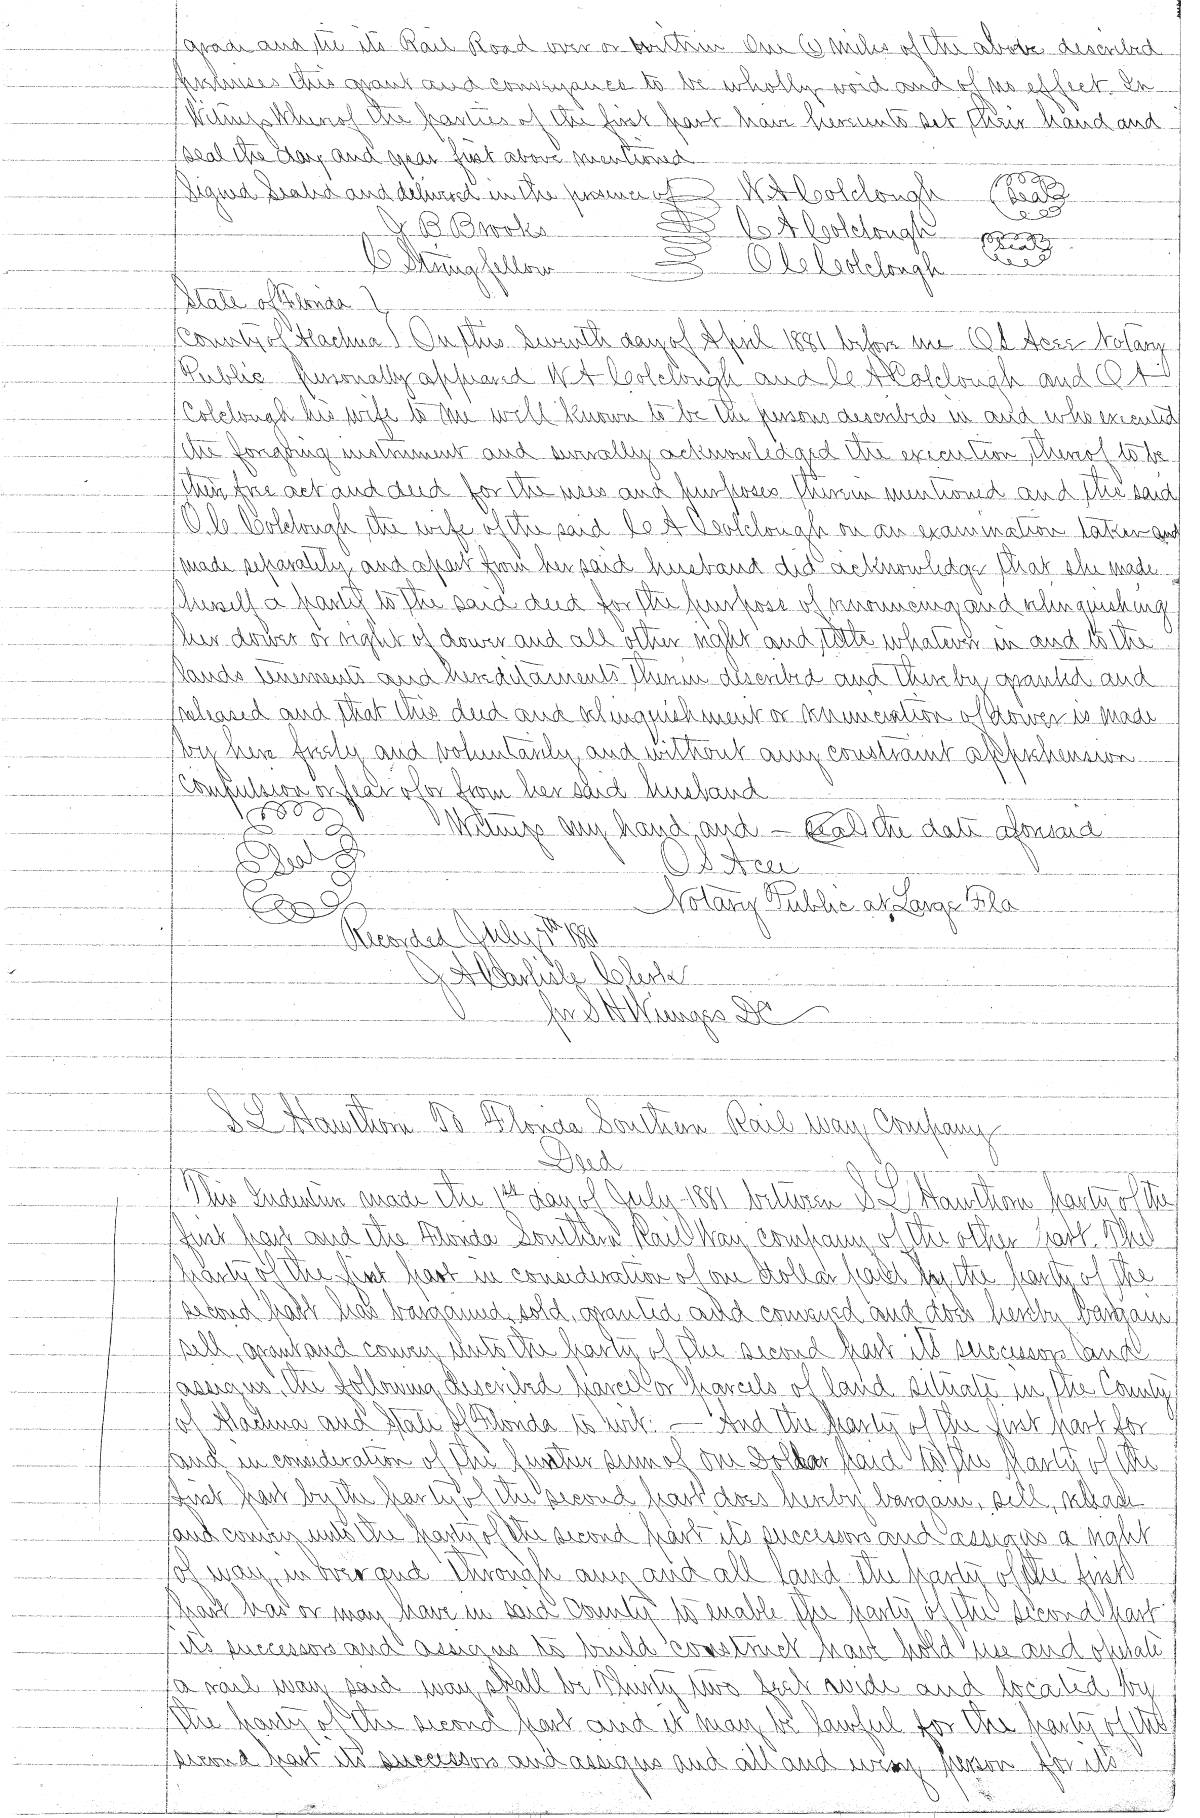 grade and tie its Rail Road over or within One (1) miles of the above described
premises this grant and conveyance to be wholly void and of no effect. In
Witness Whereof the parties of the first part have hereunto set their hand and
seal the day and year first above mentioned
Signed Sealed and delivered in the presence of W A Colclough Seal
J B Brooks C A Colclough Seal
C Stringfellow O C Colclough
State of Florida
County of Alachua On this Seventh day of April 1881 before me O S Acee Notary
Public personally appeared W A Colclough and C A Colclough and O A
Colclough his wife to me well known to be the persons described in and who executed
the forgoing instrument and severally acknowledged the execution thereof to be
their free act and deed for the uses and purposes therein mentioned and the said
O.C. Colclough the wife of the said C A Colclough on an examination taken and
made separately and apart from her said husband did acknowledge that she made
herself a party to the said deed for the purpose of renouncing and relinquishing
her dower or right of dower and all other right and title whatever in and to the
lands tenements and hereditaments therein described and thereby granted and
released and that this deed and relinquishment or renunciation of dower is made
by here freely and voluntarily and without any constraint apprehension
compulsion or fear of or from her said husband
Seal Witness my hand and — Seal the date aforesaid
O S Acee
Notary Public at Large Fla
Recorded July 7th 1881
J A Carlisle Clerk
pr S H Wienges DC
S L Hawthorn To Florida Southern Rail way Company
Deed
This Indenture made the 1st day of July 1881 between S L Hawthorn party of the
first part and the Florida Southern Rail Way company of the other part. The
party of the first part in consideration of one dollar paid by the party of the
second part has bargained, sold, granted and conveyed and does hereby bargain
sell, grant and convey unto the party of the second part its successors and
assigns, the following described parcel or parcels of land situate in the County
of Alachua and State of Florida to wit: — And the party of the first part for
and in consideration of the further sum of one Dollar paid to the Party of the
first part by the party of the second part does hereby bargain, sell, release
and convey unto the party of the second part its successors and assigns a right
of way, in over and through any and all land the party of the first
part has or may have in said County to enable the party of the second part
its successors and assigns to build construct have hold use and operate
a rail way said way shall be Thirty two feet wide and located by
the party of the second part and it may be lawful for the party of the
second part its successors and assigns and all and every person for its